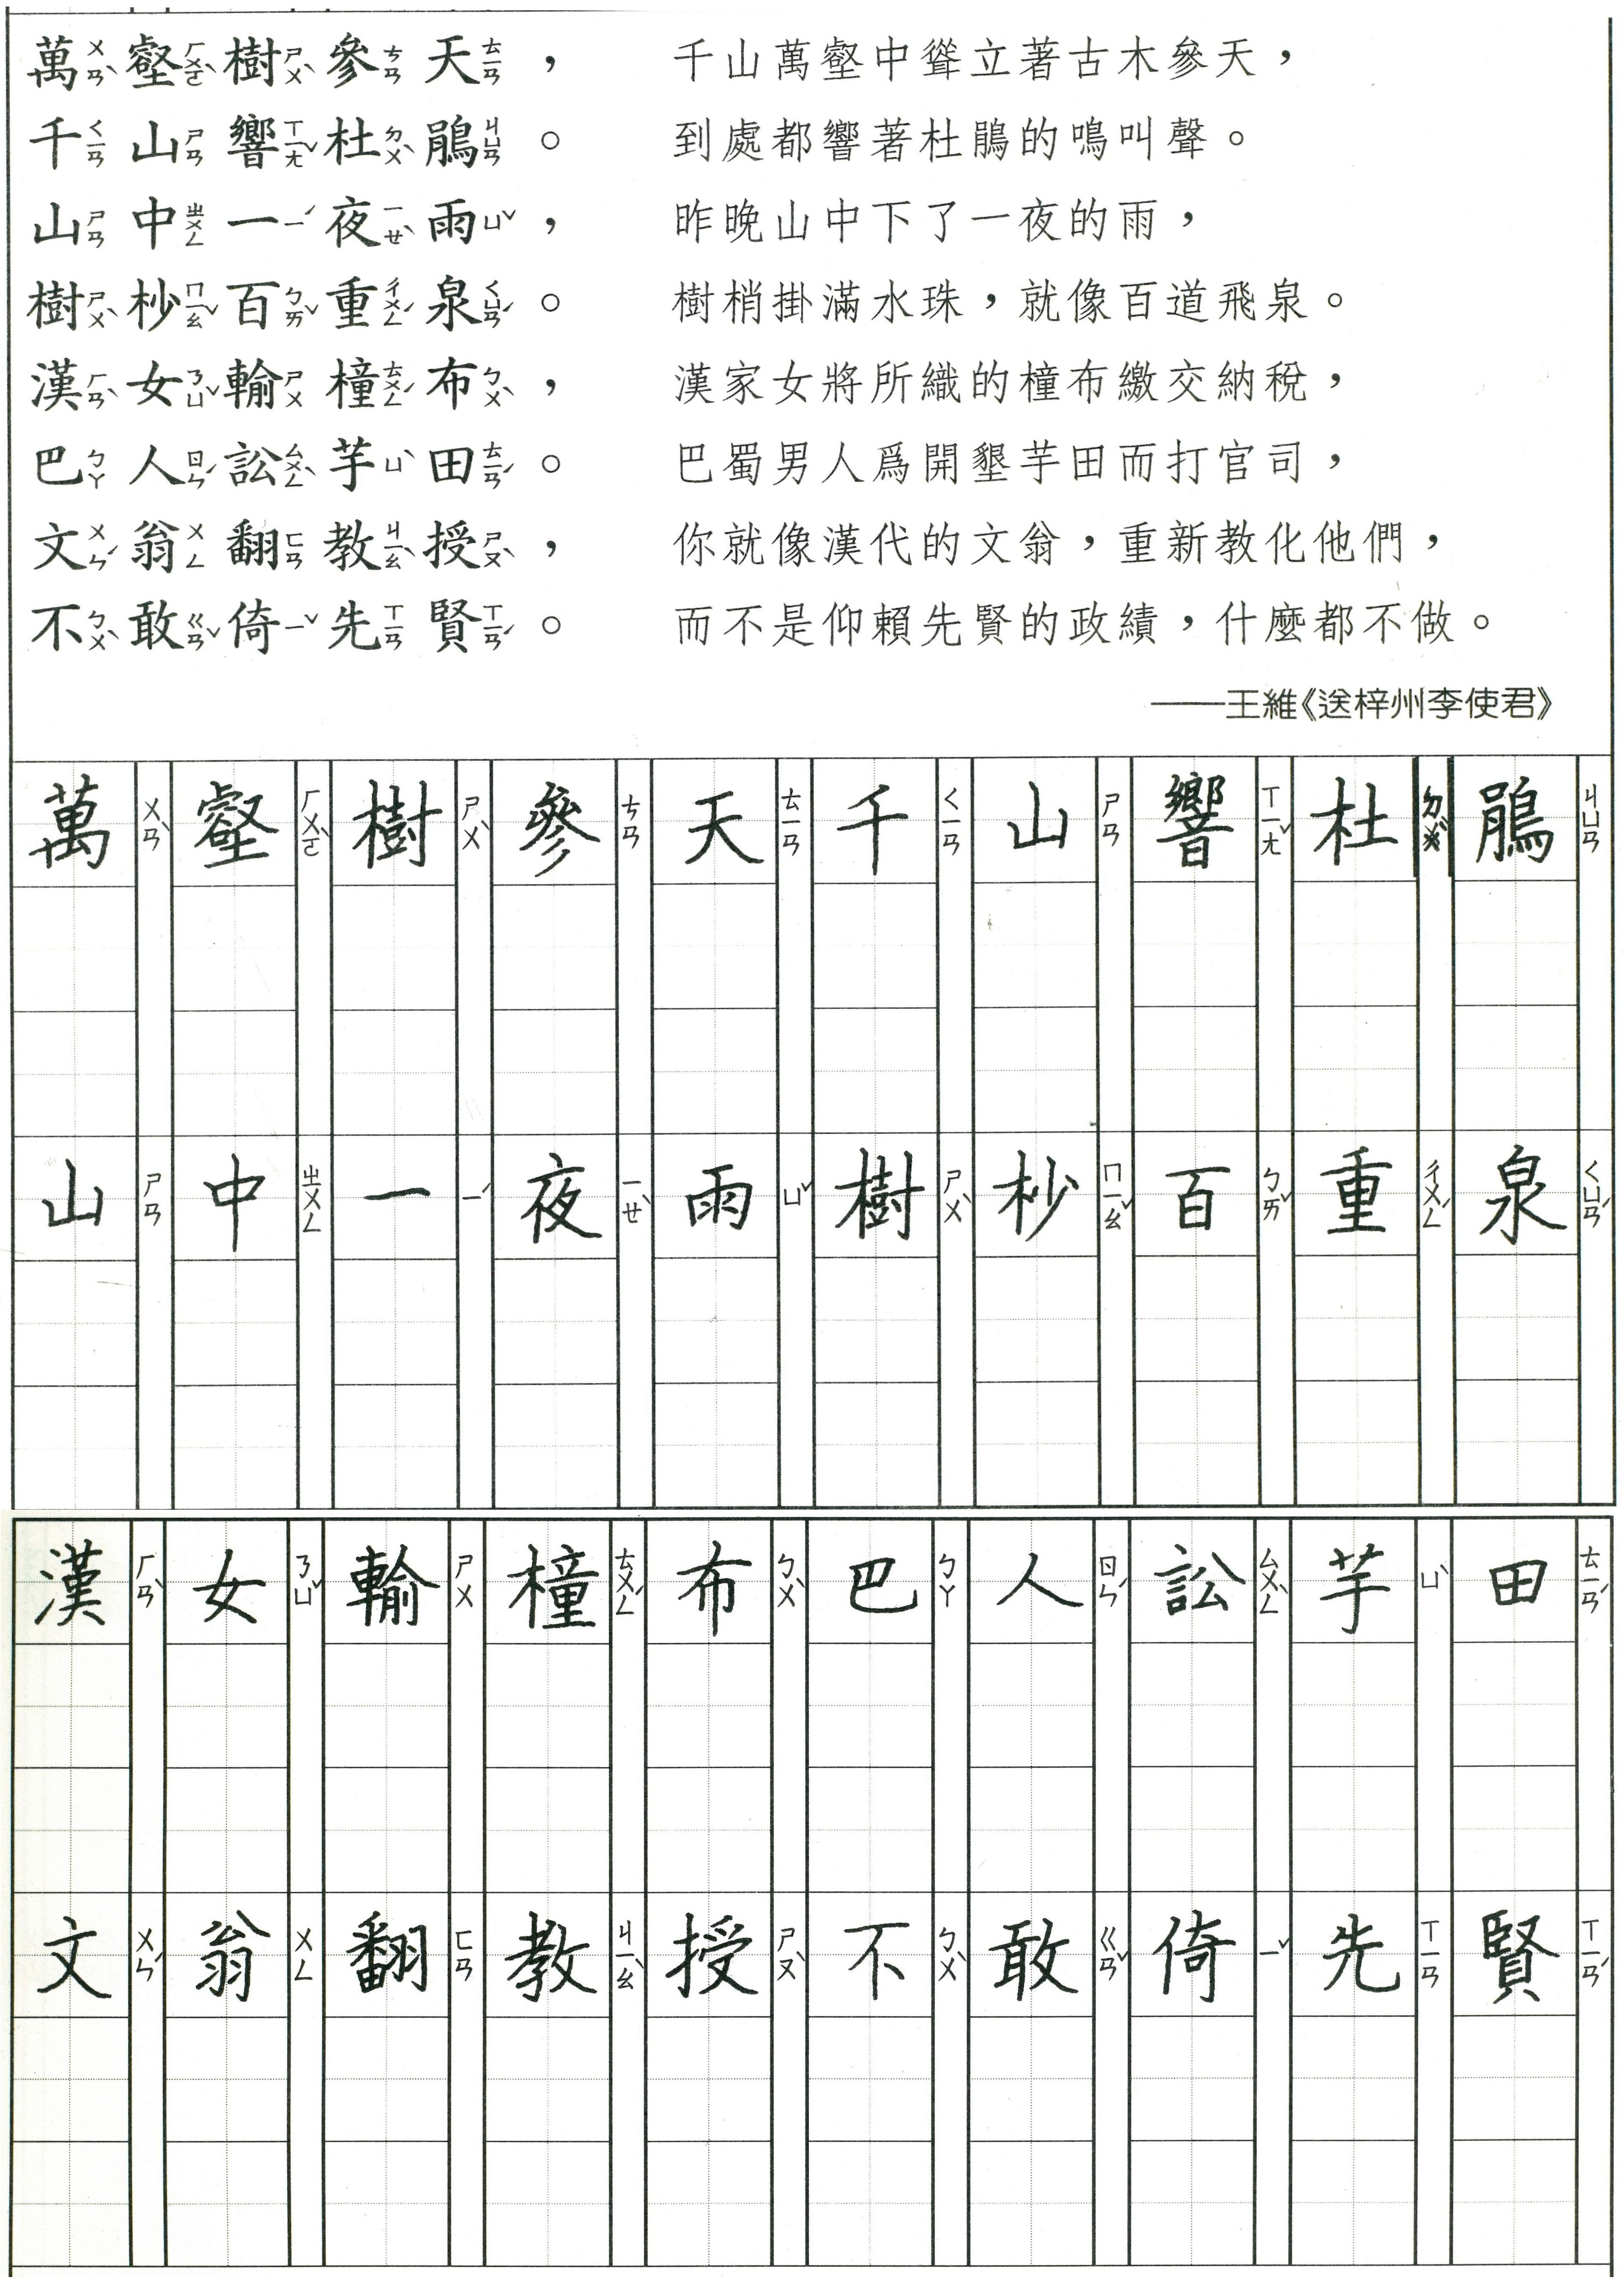 萬ㄨㄢˋ壑ㄏㄨㄛˋ樹ㄕㄨˋ參ㄘㄢ天ㄊㄧㄢ， 千山萬壑中聳立著古木參天，
千ㄑㄧㄢ山ㄕㄢ響ㄒㄧㄤˇ杜ㄉㄨˋ鵑ㄐㄩㄢ。 到處都響著杜鵑的鳴叫聲。
山ㄕㄢ中ㄓㄨㄥ一ㄧˊ夜ㄧㄝˋ雨ㄩˇ， 昨晚山中下了一夜的雨，
樹ㄕㄨˋ杪ㄇㄧㄠˇ百ㄅㄞˇ重ㄔㄨㄥˊ泉ㄑㄩㄢˊ。 樹梢掛滿水珠，就像百道飛泉。
漢ㄏㄢˋ女ㄋㄩˇ輸ㄕㄨ橦ㄊㄨㄥˊ布ㄅㄨˋ， 漢家女將所織的橦布繳交納稅，
巴ㄅㄚ人ㄖㄣˊ訟ㄙㄨㄥˋ芋ㄩˋ田ㄊㄧㄢˊ。 巴蜀男人爲開墾芋田而打官司，
文ㄨㄣˊ翁ㄨㄥ翻ㄈㄢ教ㄐㄧㄠˋ授ㄕㄡˋ， 你就像漢代的文翁，重新教化他們，
不ㄅㄨˋ敢ㄍㄢˇ倚ㄧˇ先ㄒㄧㄢ賢ㄒㄧㄢˊ。 而不是仰賴先賢的政績，什麼都不做。
——王維《送梓州李使君》
萬ㄨㄢˋ 壑ㄏㄨㄛˋ 樹ㄕㄨˋ 參ㄘㄢ 天ㄊㄧㄢ 千ㄑㄧㄢ 山ㄕㄢ 響ㄒㄧㄤˇ 杜ㄉㄨˋ 鵑ㄐㄩㄢ
山ㄕㄢ 中ㄓㄨㄥ 一ㄧˊ 夜ㄧㄝˋ 雨ㄩˇ 樹ㄕㄨˋ 杪ㄇㄧㄠˇ 百ㄅㄞˇ 重ㄔㄨㄥˊ 泉ㄑㄩㄢˊ
漢ㄏㄢˋ 女ㄋㄩˇ 輸ㄕㄨ 橦ㄊㄨㄥˊ 布ㄅㄨˋ 巴ㄅㄚ 人ㄖㄣˊ 訟ㄙㄨㄥˋ 芋ㄩˋ 田ㄊㄧㄢˊ
文ㄨㄣˊ 翁ㄨㄥ 翻ㄈㄢ 教ㄐㄧㄠˋ 授ㄕㄡˋ 不ㄅㄨˋ 敢ㄍㄢˇ 倚ㄧˇ 先ㄒㄧㄢ 賢ㄒㄧㄢˊ